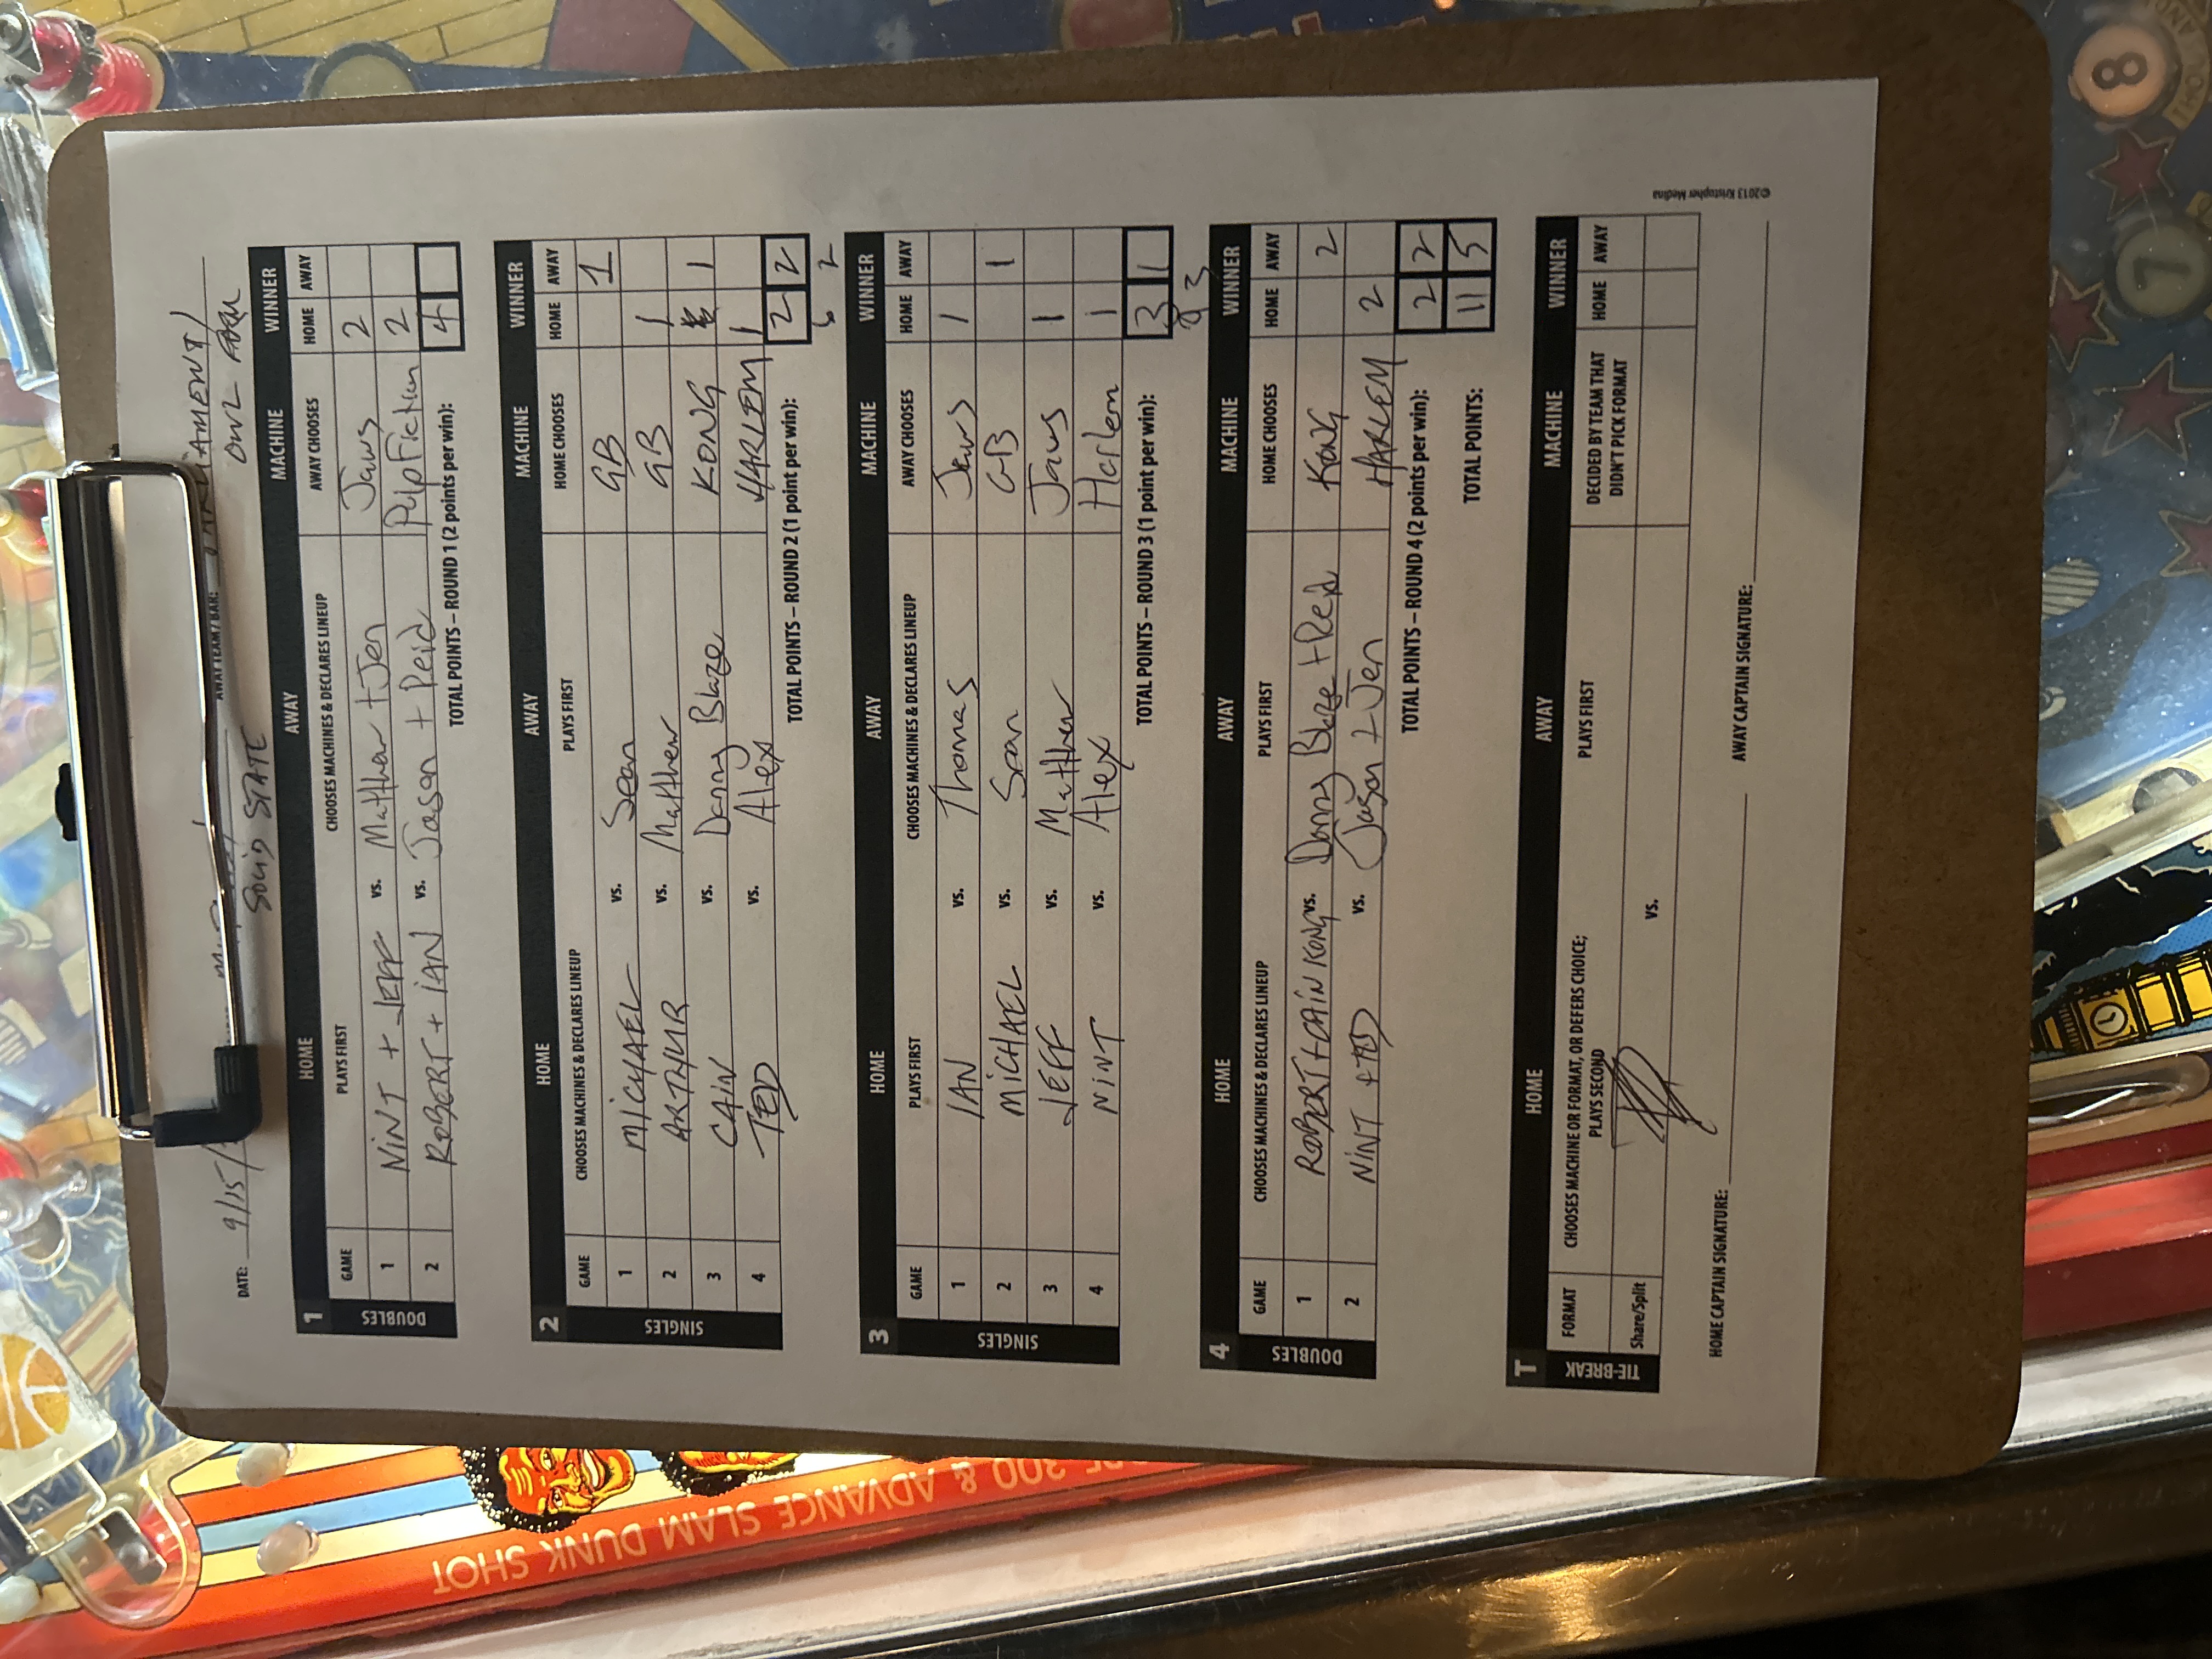 DATE: 9/15/
SOLID STATE
OWL FARM
1 HOME AWAY MACHINE WINNER
GAME PLAYS FIRST CHOOSES MACHINES & DECLARES LINEUP AWAY CHOOSES HOME AWAY
DOUBLES
1 NINT + JEFF vs. Matthew + Jen Jaws 2
2 ROBERT + IAN vs. Jason + Reid Pulp Fiction 2
TOTAL POINTS – ROUND 1 (2 points per win): 4
2 HOME AWAY MACHINE WINNER
GAME CHOOSES MACHINES & DECLARES LINEUP PLAYS FIRST HOME CHOOSES HOME AWAY
SINGLES
1 MICHAEL vs. Sean GB 1
2 ARTHUR vs. Matthew GB 1
3 CAIN vs. Danny Blaze KONG 1
4 TED vs. Alex HARLEM 1
TOTAL POINTS – ROUND 2 (1 point per win): 2 2
6 2
3 HOME AWAY MACHINE WINNER
GAME PLAYS FIRST CHOOSES MACHINES & DECLARES LINEUP AWAY CHOOSES HOME AWAY
SINGLES
1 IAN vs. Thomas Jaws 1
2 MICHAEL vs. Sean GB 1
3 JEFF vs. Matthew Jaws 1
4 NINT vs. Alex Harlem 1
TOTAL POINTS – ROUND 3 (1 point per win): 3 1
9 3
4 HOME AWAY MACHINE WINNER
GAME CHOOSES MACHINES & DECLARES LINEUP PLAYS FIRST HOME CHOOSES HOME AWAY
DOUBLES
1 ROBERT + CAIN KONG vs. Danny Blaze + Reid KONG 2
2 NINT + TED vs. Jason + Jen HARLEM 2
TOTAL POINTS – ROUND 4 (2 points per win): 2 2
TOTAL POINTS: 11 5
T HOME AWAY MACHINE WINNER
FORMAT CHOOSES MACHINE OR FORMAT, OR DEFERS CHOICE; PLAYS SECOND PLAYS FIRST DECIDED BY TEAM THAT DIDN'T PICK FORMAT HOME AWAY
TIE-BREAK
Share/Split vs.
HOME CAPTAIN SIGNATURE: AWAY CAPTAIN SIGNATURE:
©2013 Kristopher Medina
300 & ADVANCE SLAM DUNK SHOT
8
7